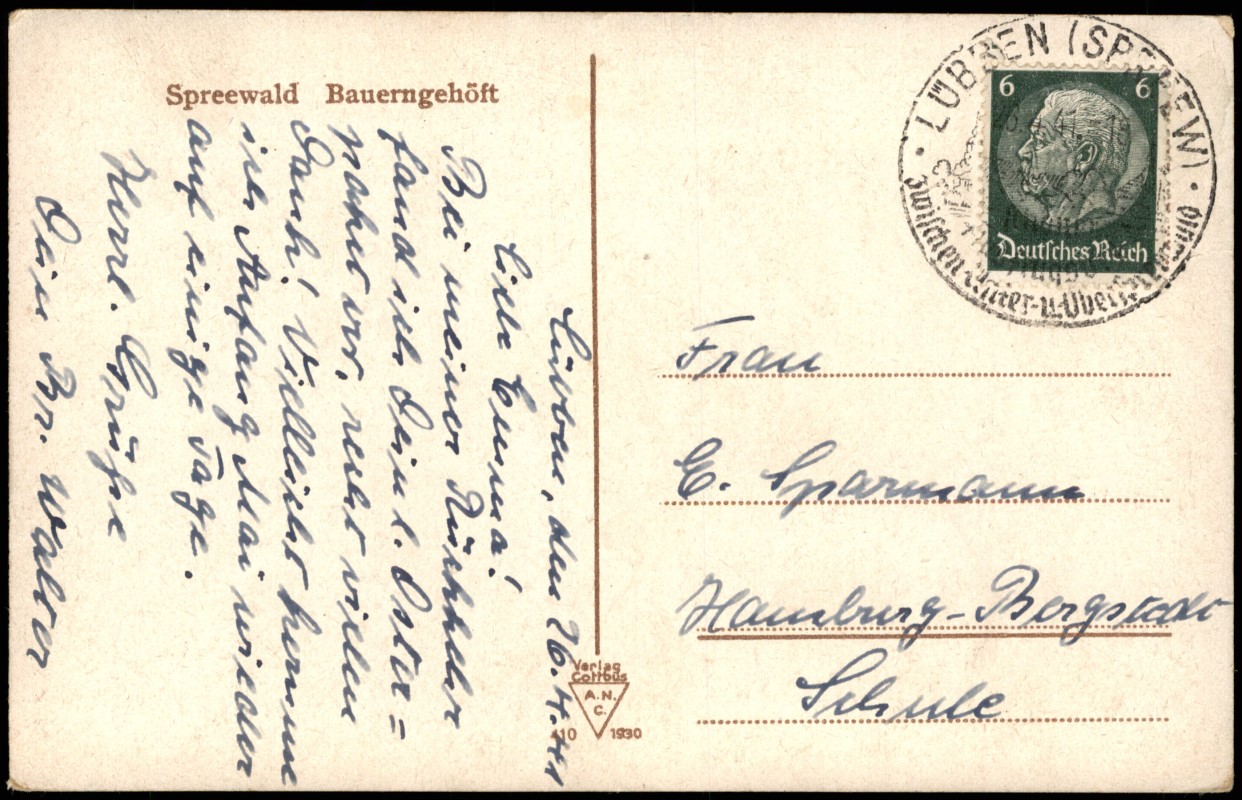 Spreewald Bauerngehöft
Lübben, den 26.4.41
Liebe Emma!
Bei meiner Rückkehr
fand ich Deine l. Oster=
nachr. vor, recht vielen
Dank! Vielleicht komme
ich Anfang Mai wieder
auf einige Tage.
Herzl. Grüße
Dein Br. Walter
Verlag
Cottbus
A.N.
C.
1930
LÜBBEN (SPREEW)
zwischen Unter-u.Ober
6 6
Deutsches Reich
Frau
E. Sparmann
Hamburg-Bergstedt
Schule